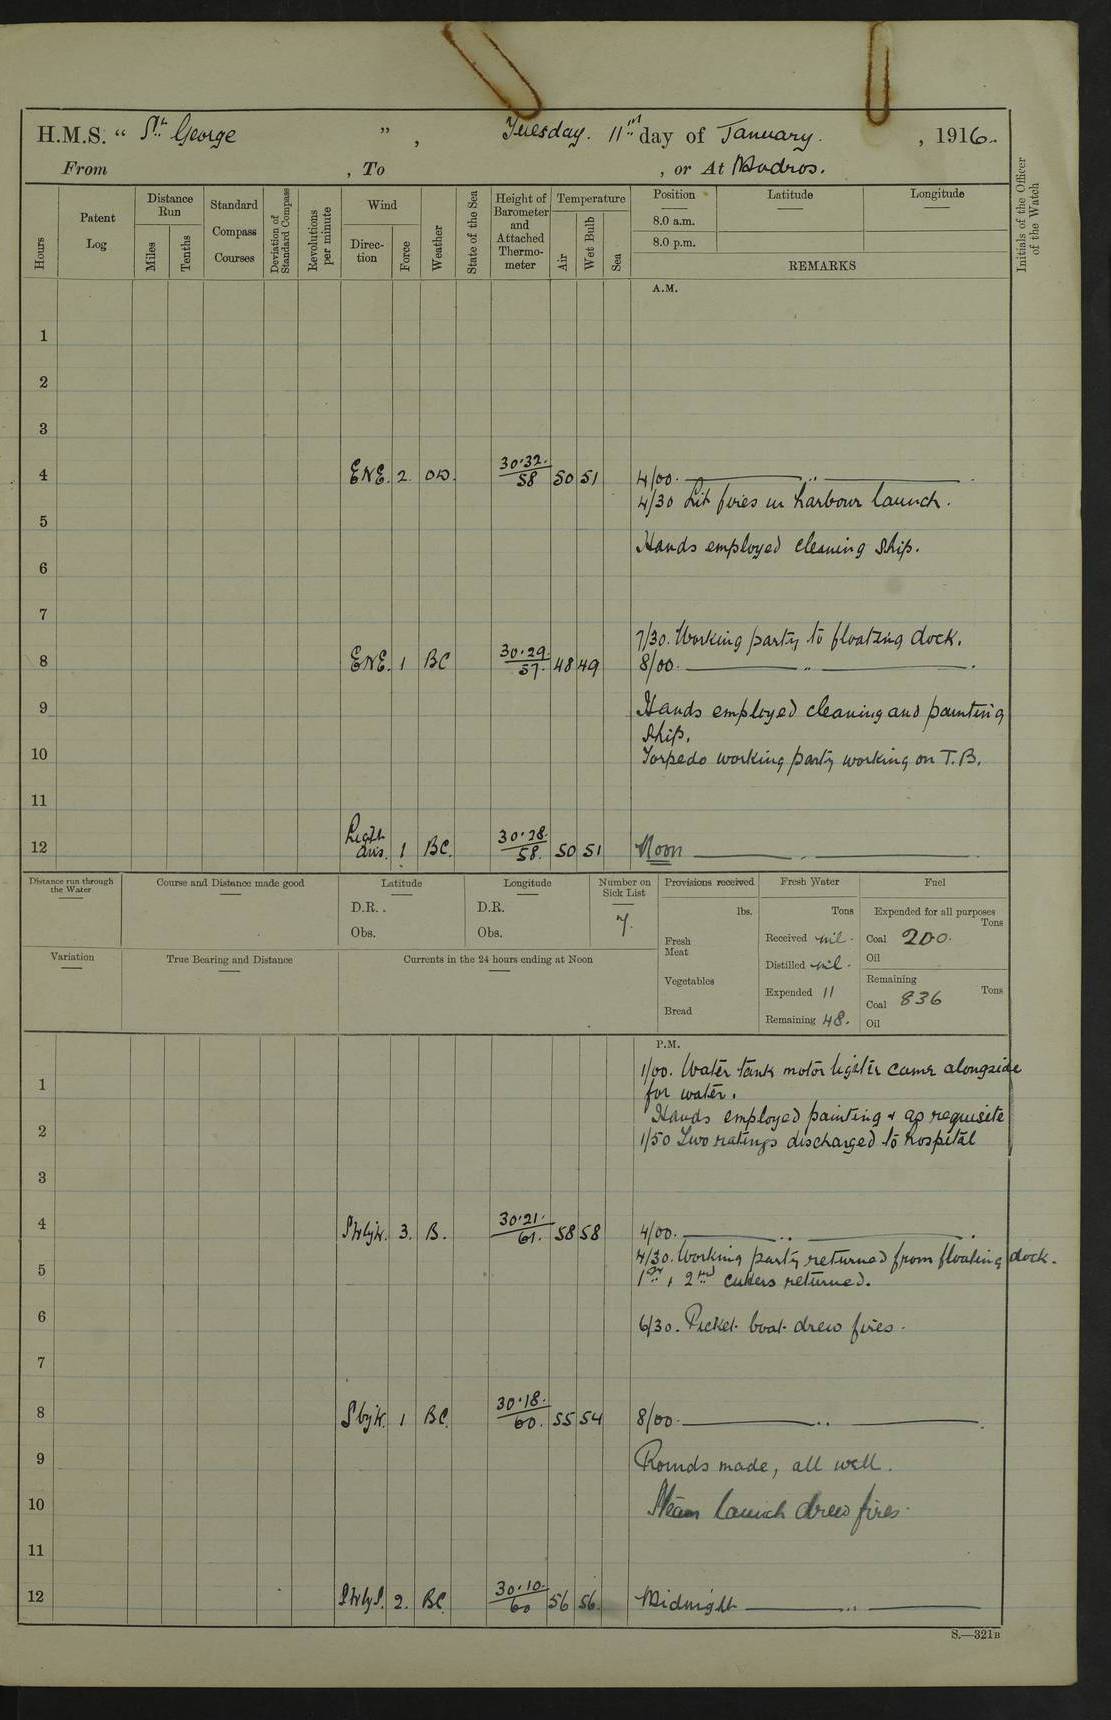 H.M.S. “ St. George ”, Tuesday. 11th day of January. , 1916.
From , To , or At Mudros.
Hours
Patent Log
Distance Run
Miles
Tenths
Standard Compass Courses
Deviation of Standard Compass
Revolutions per minute
Wind
Direction
Force
Weather
State of the Sea
Height of Barometer and Attached Thermometer
Temperature
Air
Wet Bulb
Sea
Position
8.0 a.m.
8.0 p.m.
Latitude
Longitude
REMARKS
Initials of the Officer of the Watch
A.M.
1
2
3
4 ENE. 2. OD. 30.32. 58 50 51 4/00. „
4/30 Lit fires in harbour launch.
5
Hands employed cleaning ship.
6
7
7/30. Working party to floating dock.
8 ENE. 1 BC 30.29. 57. 48 49 8/00. „
9 Hands employed cleaning and painting
ship.
10 Torpedo working party working on T.B.
11
12 Light airs. 1 BC. 30.28. 58. 50 51 Noon
Distance run through the Water
Course and Distance made good
Latitude
D.R. .
Obs.
Longitude
D.R.
Obs.
Number on Sick List
7.
Provisions received
lbs.
Fresh Meat
Vegetables
Bread
Fresh Water
Tons
Received nil.
Distilled nil.
Expended 11
Remaining 48.
Fuel
Expended for all purposes
Tons
Coal 200.
Oil
Remaining
Tons
Coal 836
Oil
Variation
True Bearing and Distance
Currents in the 24 hours ending at Noon
P.M.
1/00. Water tank motor lighter came alongside
1 for water.
Hands employed painting & as requisite
2 1/50 Two ratings discharged to hospital
3
4 3. B. 30.21. 61. 58 58 4/00. „
4/30. Working party returned from floating dock.
5 1st, 2nd cutters returned.
6 6/30. Picket boat drew fires.
7
8 SbyW. 1 BC. 30.18. 60. 55 54 8/00. „
9 Rounds made, all well.
10 Steam launch drew fires.
11
12 2. BC. 30.10. 60 56 56. Midnight „
S.—321B